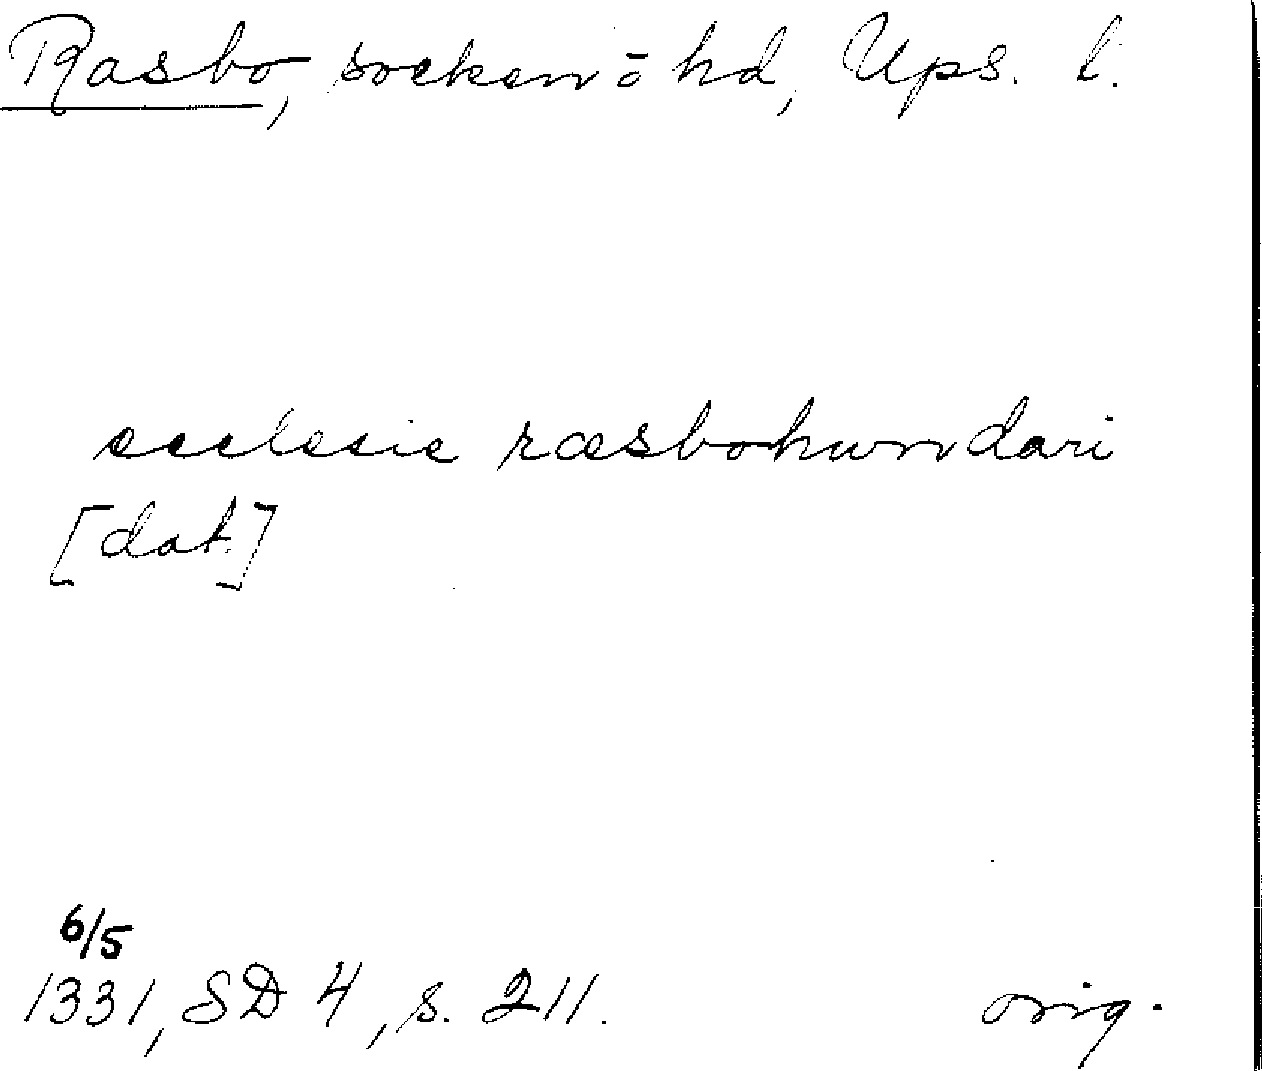 Rasbo, socken o hd, Ups. l.
ecclesie ræsbohundari
[dat.]
6/5
1331, SD 4, s. 211. orig.